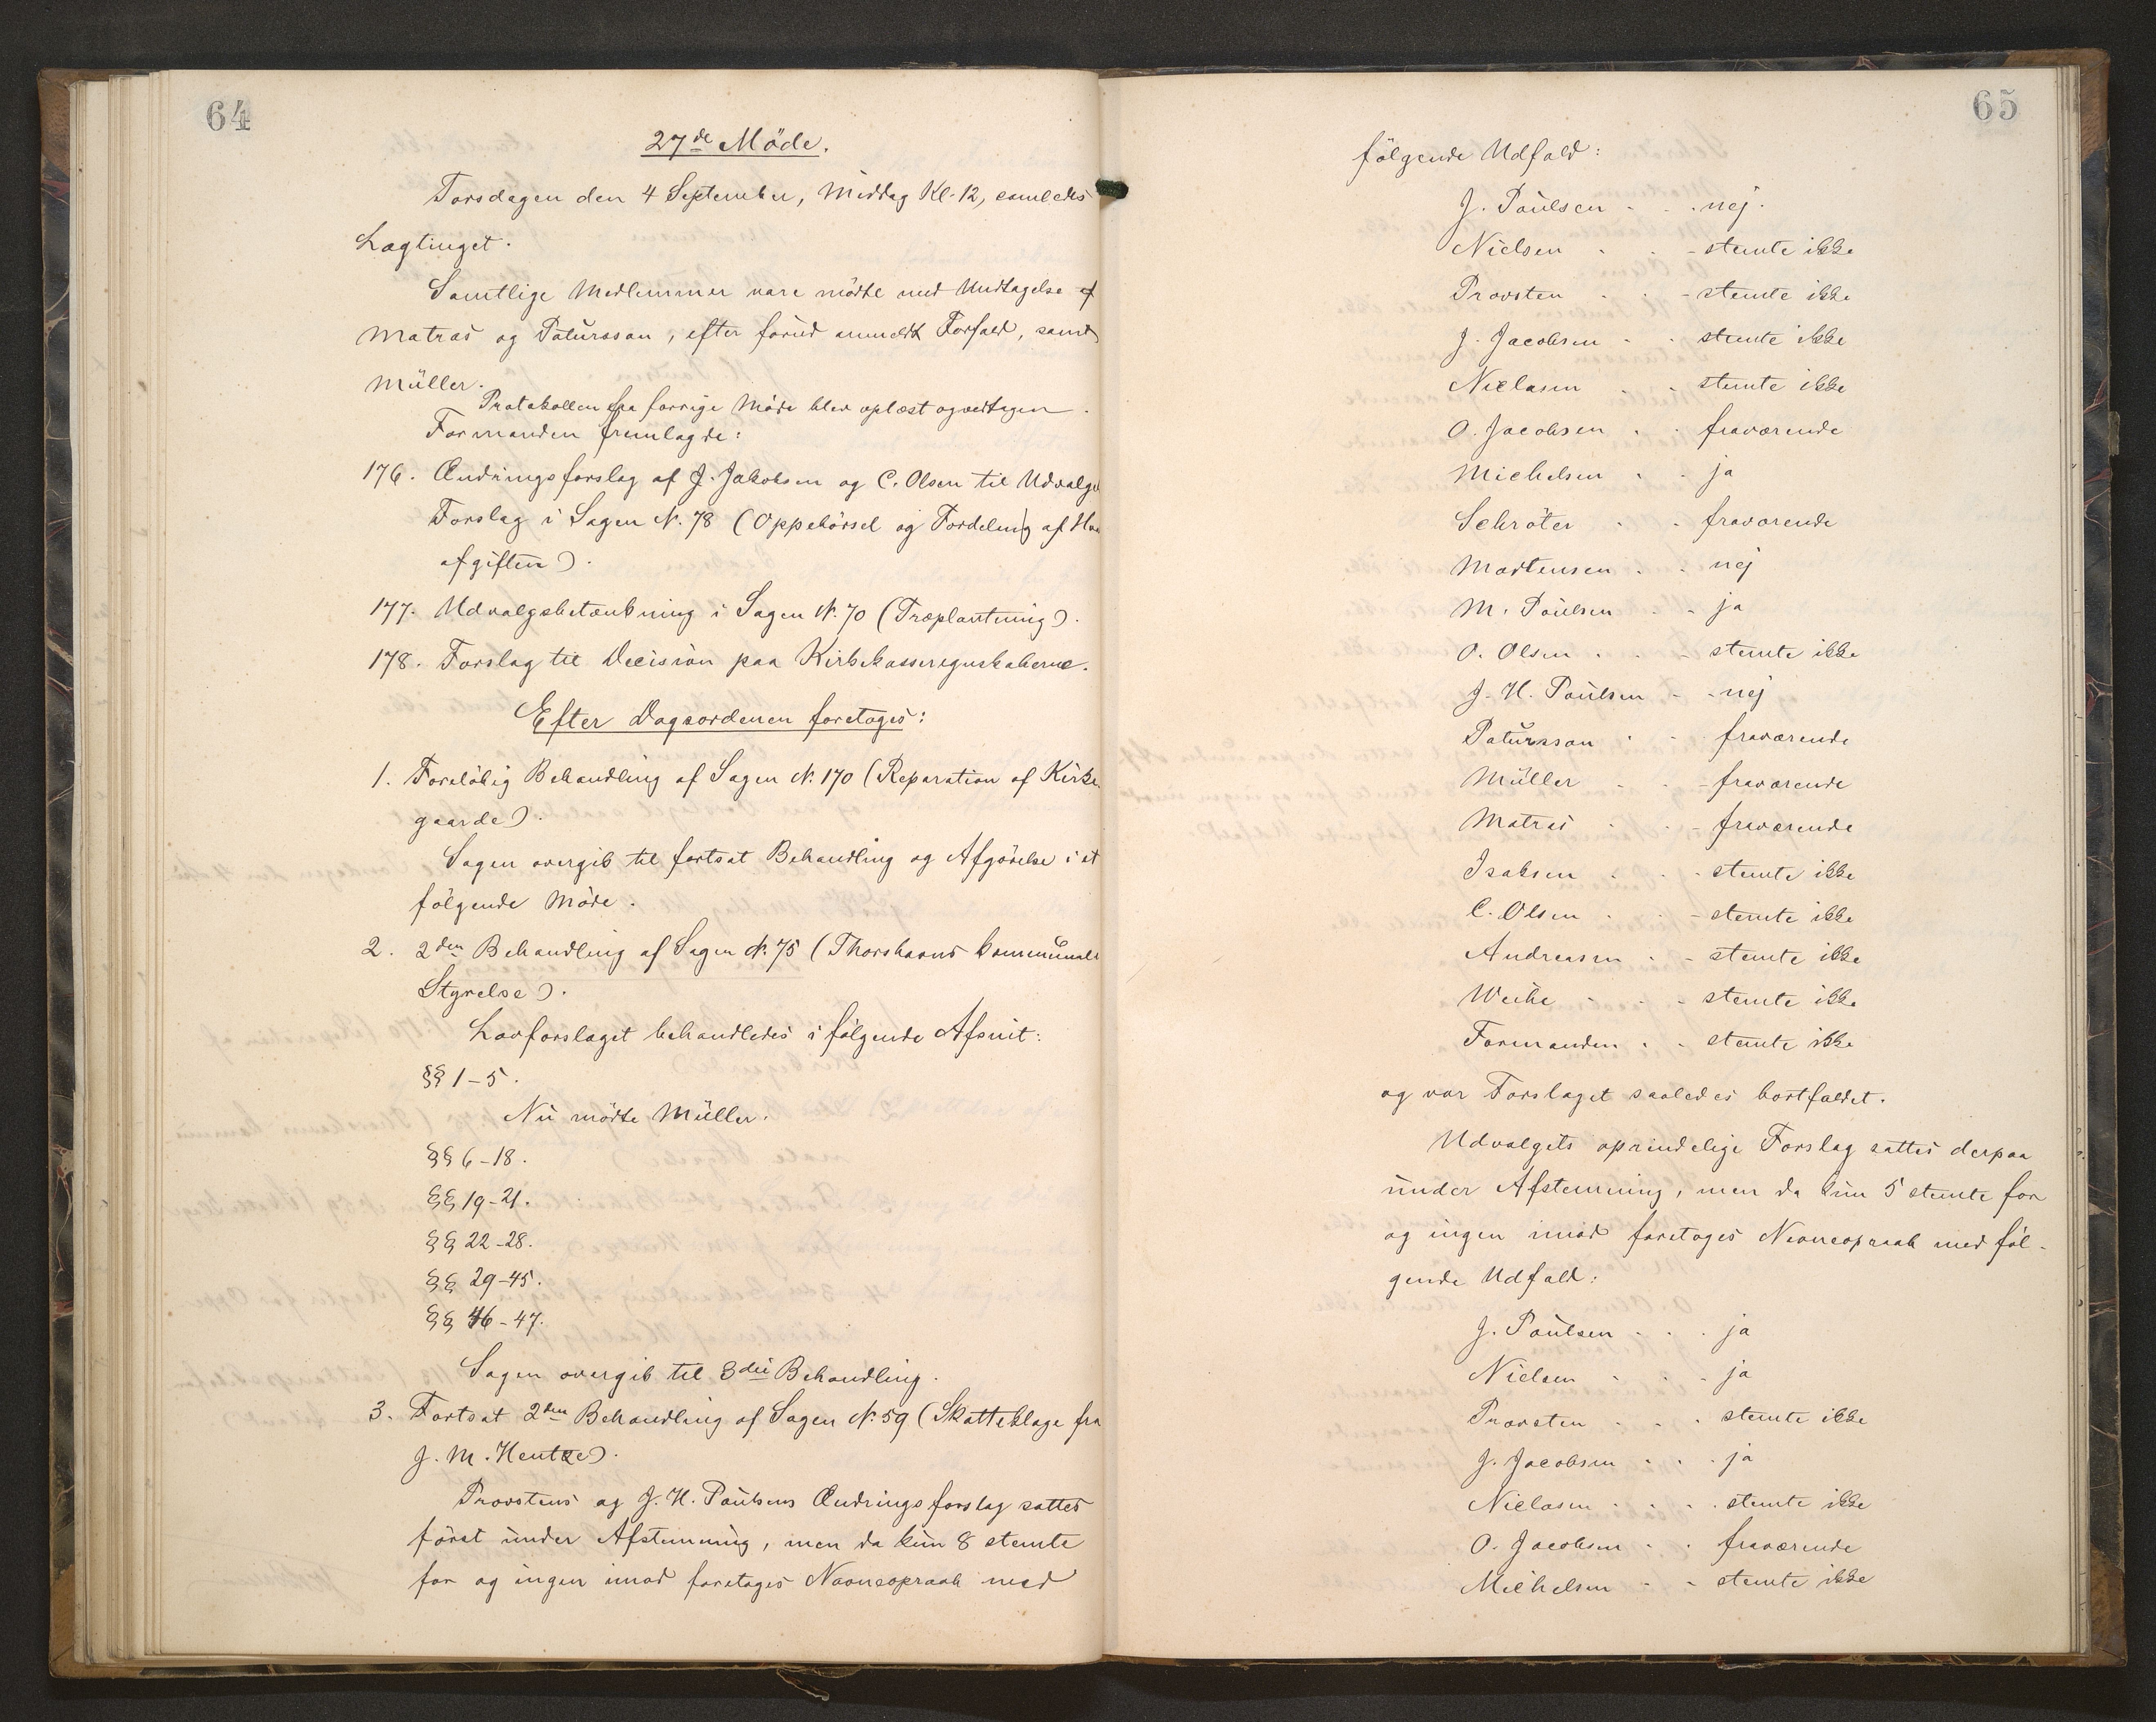 64
27de Möde.
Torsdagen den 4 September, Middag Kl. 12, samledes
Lagtinget.
Samtlige Medlemmer vare mödte med Undtagelse af
Matras og Patursson, efter forud anmeldt Forfald, samt
Müller.
Protokollen fra forrige Möde blev oplæst og vedtagen.
Formanden fremlagde:
176. Ændringsforslag af J. Jakobsen og C. Olsen til Udvalgets
Forslag i Sagen N. 78 (Oppebörsel og Fordeling af
afgiften).
177. Udvalgsbetænkning i Sagen N. 70 (Træplantning).
178. Forslag til Decision paa Kirkekasseregnskaberne.
Efter Dagsordenen foretoges:
1. Forelöbig Behandling af Sagen N. 170 (Reparation af Kirke-
gaarde).
Sagen overgik til fortsat Behandling og Afgörelse i et
fölgende Möde.
2. 2den Behandling af Sagen N. 75 (Thorshavns kommunale
Styrelse).
Lovforslaget behandledes i fölgende Afsnit:
§§ 1-5.
Nu mödte Müller.
§§ 6-18.
§§ 19-21.
§§ 22-28.
§§ 29-45.
§§ 46-47.
Sagen overgik til 3die Behandling.
3. Fortsat 2den Behandling af Sagen N. 59 (Skatteklage fra
J. M. Hentze).
Provstens og J. H. Poulsens Ændringsforslag sattes
först under Afstemning, men da kun 8 stemte
for og ingen imod foretoges Navneopraab med
65
fölgende Udfald:
J. Poulsen - - nej.
Nielsen - - stemte ikke
Provsten - - stemte ikke
J. Jacobsen - - stemte ikke
Niclasen - - stemte ikke
O. Jacobsen - - fraværende
Michelsen - - ja
Schröter - - fraværende
Mortensen - - nej
M. Poulsen - - ja
O. Olsen - - stemte ikke
J. H. Poulsen - - nej
Patursson - - fraværende
Müller - - fraværende
Matras - - fraværende
Isaksen - - stemte ikke
C. Olsen - - stemte ikke
Andreasen - - stemte ikke
Weihe - - stemte ikke
Formanden - - stemte ikke
og var Forslaget saaledes bortfaldet.
Udvalgets oprindelige Forslag sattes derpaa
under Afstemning, men da kun 5 stemte for
og ingen imod foretoges Navneopraab med föl-
gende Udfald:
J. Poulsen - - - ja
Nielsen - - - ja
Provsten - - - stemte ikke
J. Jacobsen - - - ja
Niclasen - - - stemte ikke
O. Jacobsen - - fraværende
Michelsen - - stemte ikke